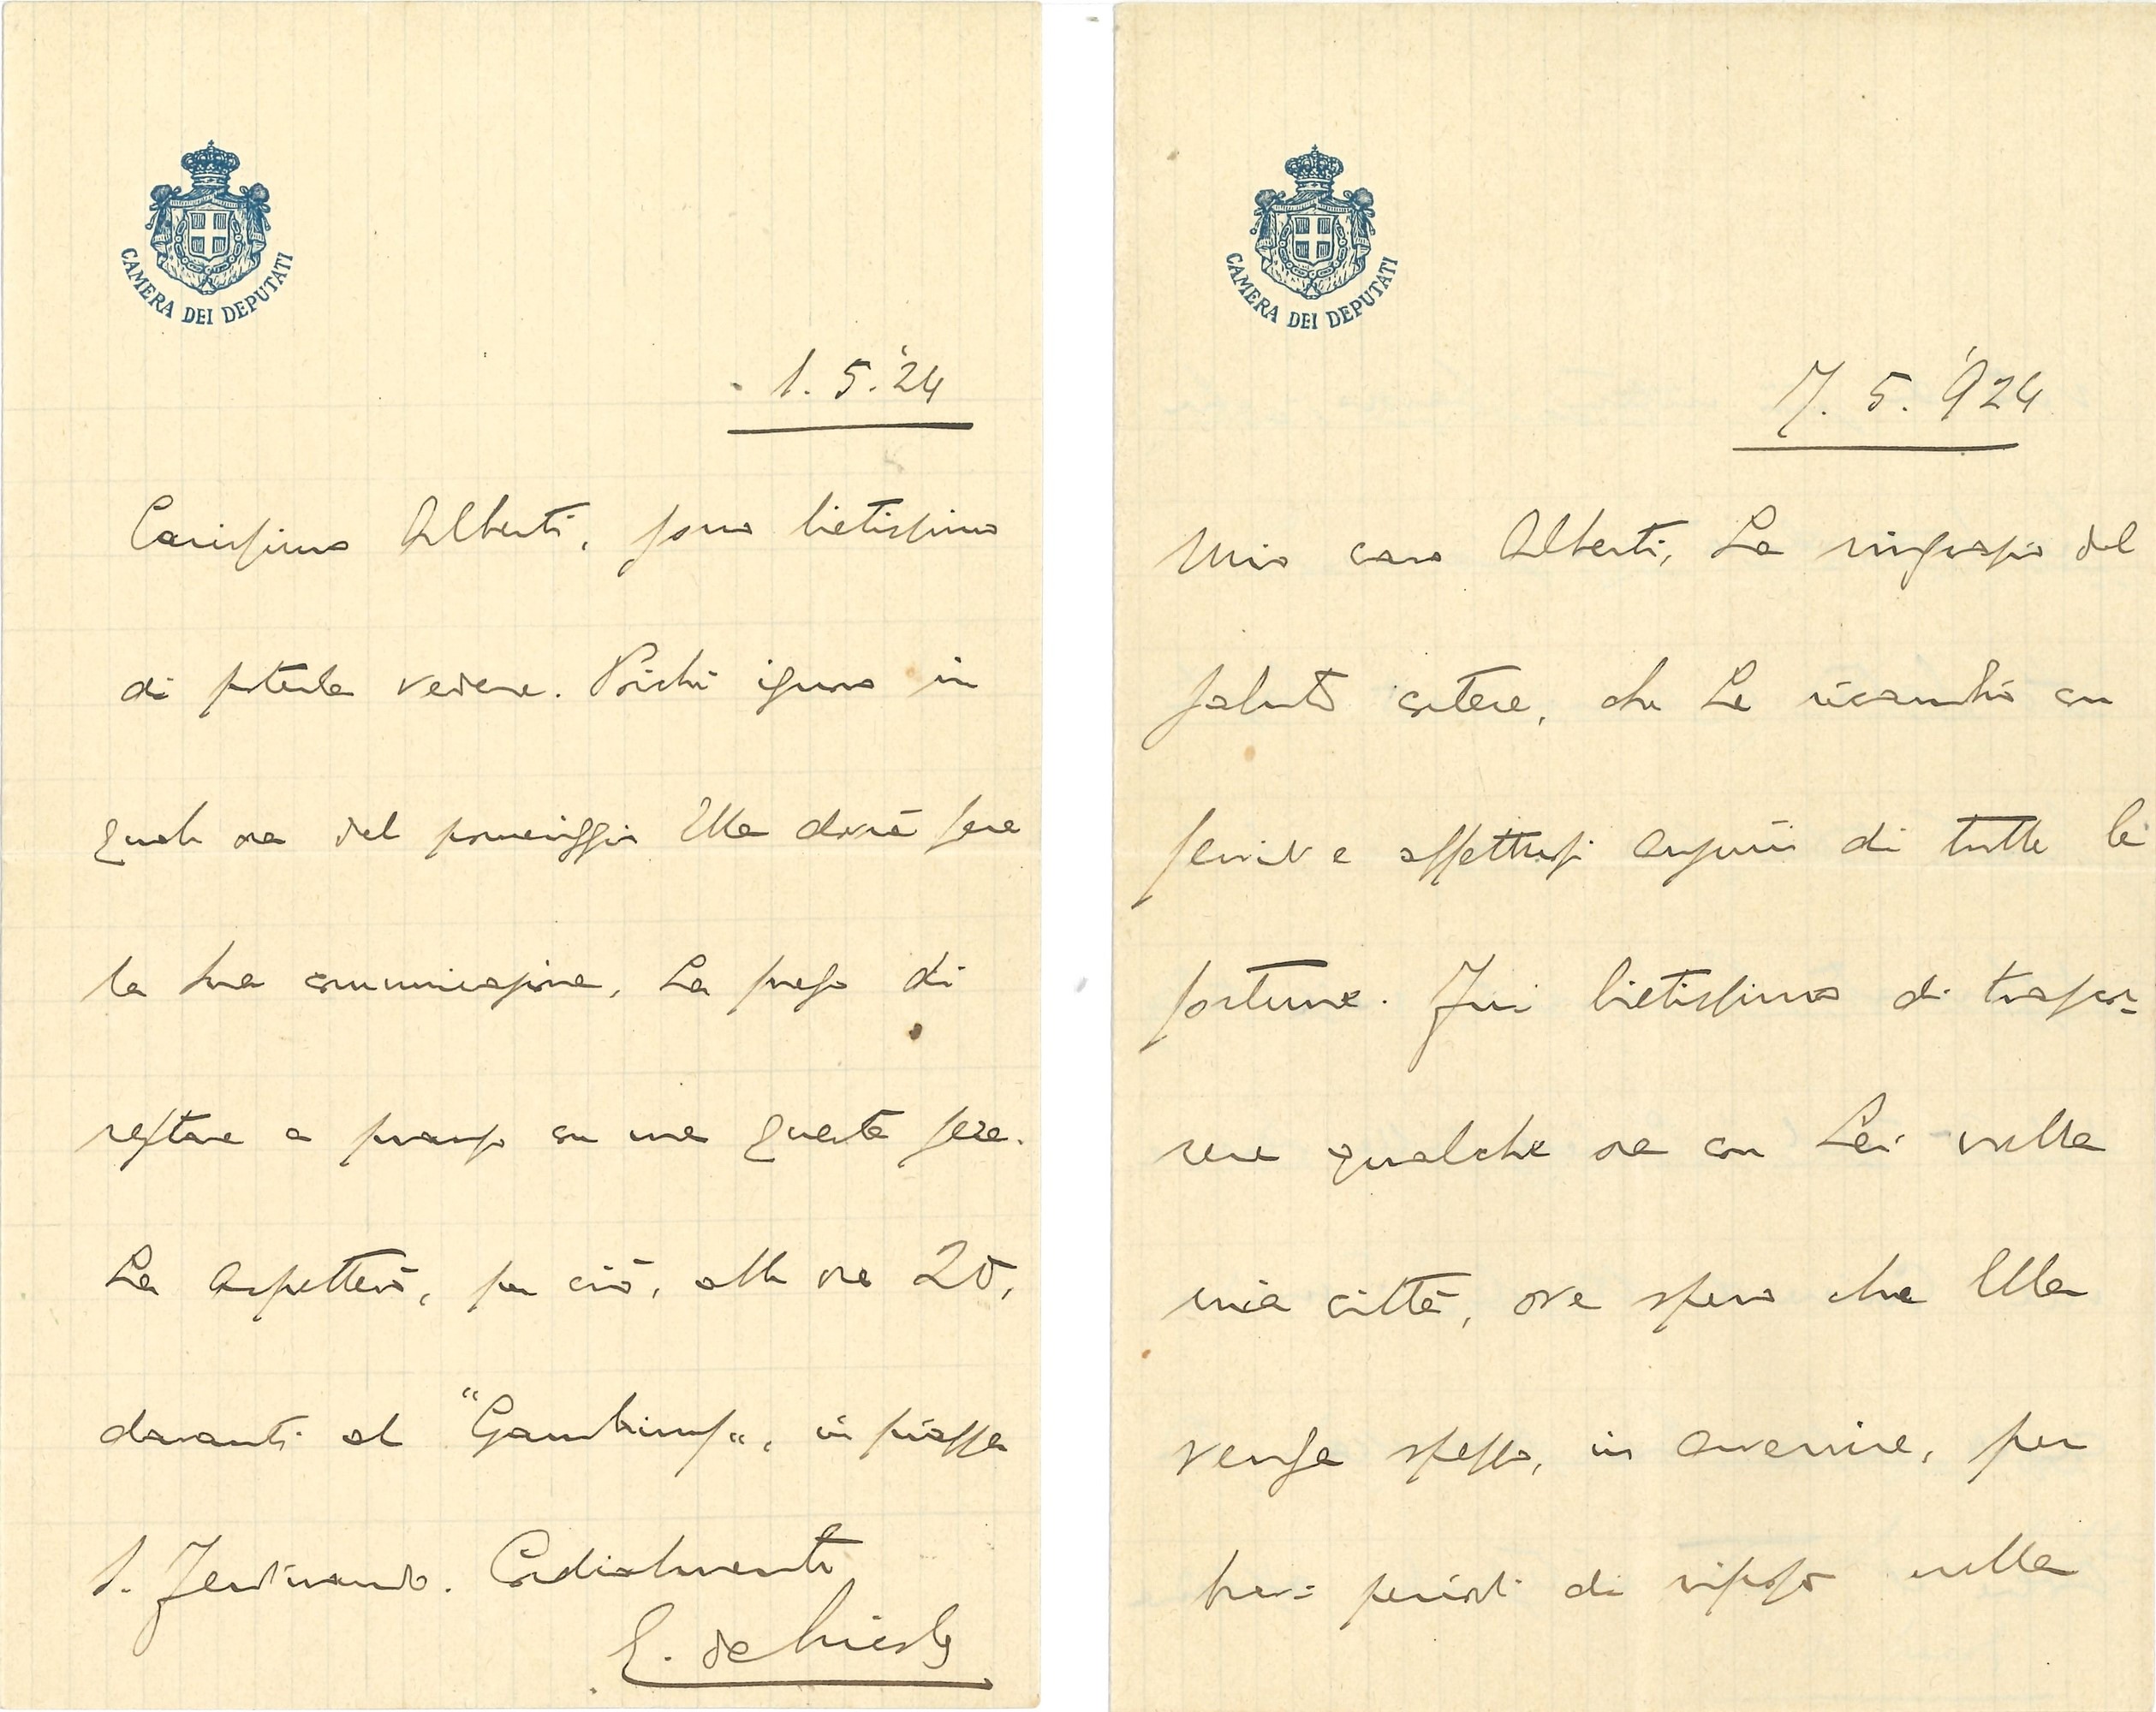 CAMERA DEI DEPUTATI
1. 5. '24
Carissimo Alberti, sono lietissimo
di poterla vedere. Poiché ignoro in
quale ora del pomeriggio Ella dovrà fare
la sua comunicazione, La prego di
restare a pranzo con me questa sera.
La aspetterò, per ciò, alle ore 20,
davanti al "Gambrinus", in piazza
S. Ferdinando. Cordialmente
E. de Nicola
CAMERA DEI DEPUTATI
7. 5. '924
Mio caro Alberti, La ringrazio del
saluto cortese, che Le ricambio con
fervidi e affettuosi auguri di tutte le
fortune. Fui lietissimo di trascor=
rere qualche ora con Lei nella
mia città, ove spero che Ella
venga spesso, in avvenire, per
brevi periodi di riposo nella